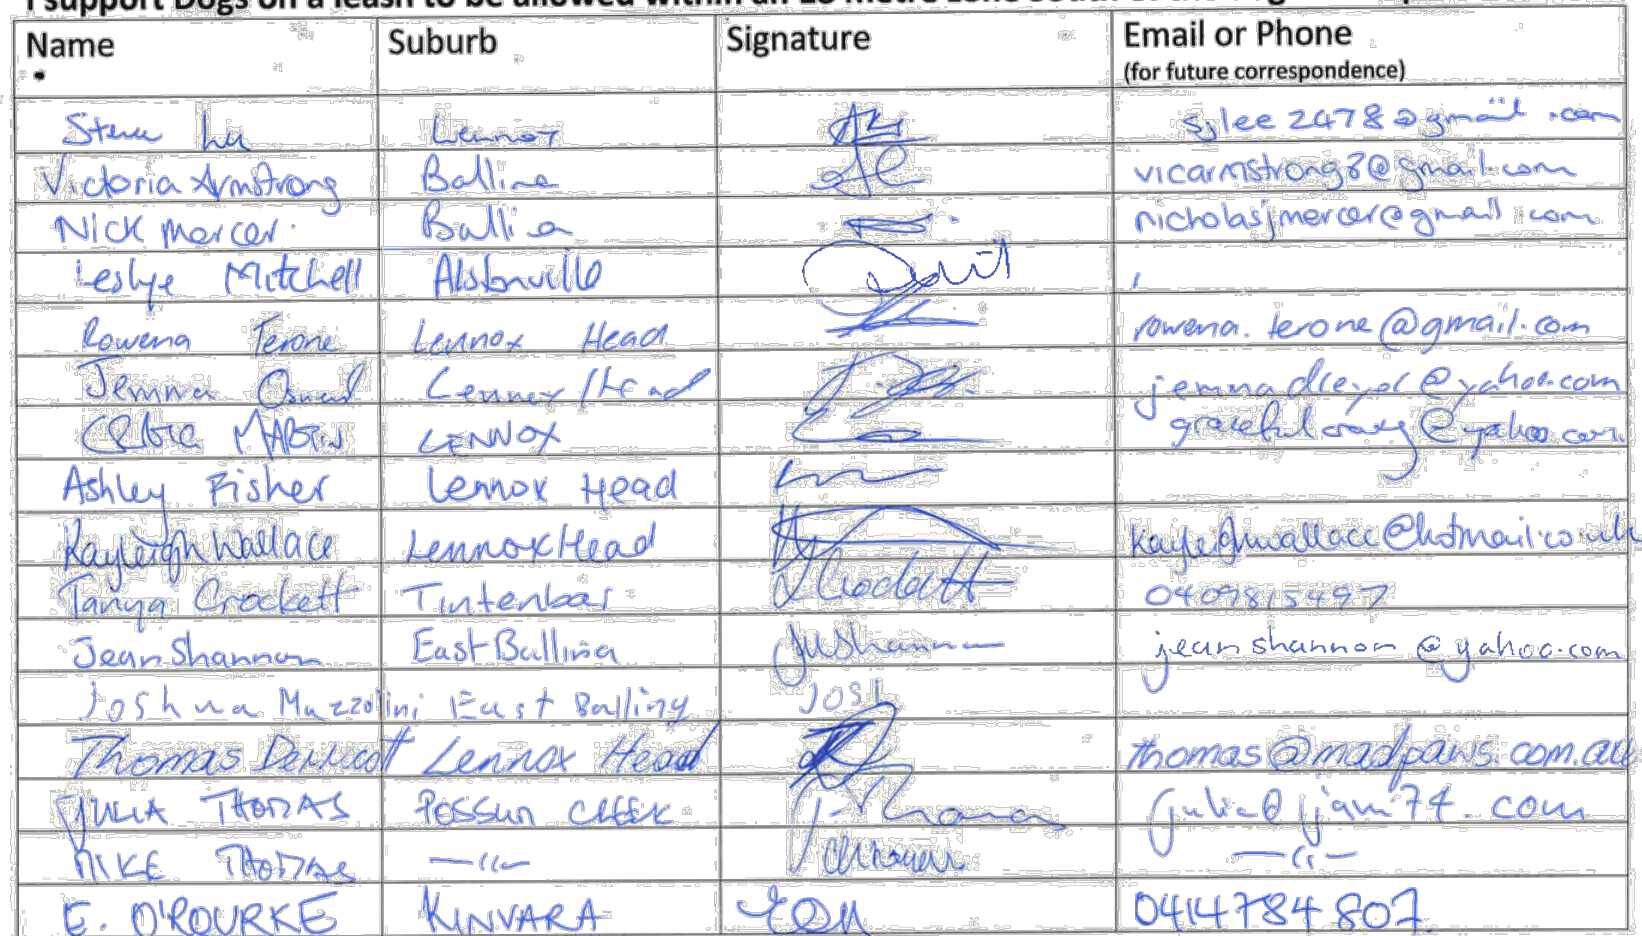 I support Dogs on a leash to be allowed within an
Name Suburb Signature Email or Phone
(for future correspondence)
Lennox sjlee2478@gmail.com
Victoria Armstrong Ballina vicarmstrong8@gmail.com
Nick Mercer Ballina nicholasjmercer@gmail.com
Leslye Mitchell Alstonville
Rowena Terone Lennox Head rowena.terone@gmail.com
Jemma Lennox Head @yahoo.com
CRAIG MARTIN LENNOX gracefulcraig@yahoo.com
Ashley Fisher Lennox Head
Kayleigh Wallace Lennox Head kayleighwallace@hotmail.co.uk
Tanya Crockett Tintenbar TCrockett 0409815497
Jean Shannon East Ballina JMShannon jeanshannon@yahoo.com
Joshua Mazzolini East Balliny JOSH
Thomas Dermott Lennox Head thomas@madpaws.com.au
JULIA THOMAS POSSUM CREEK J. Thomas julia@jjam74.com
MIKE THOMAS —"— —"—
E. O'ROURKE KINVARA 0414784807